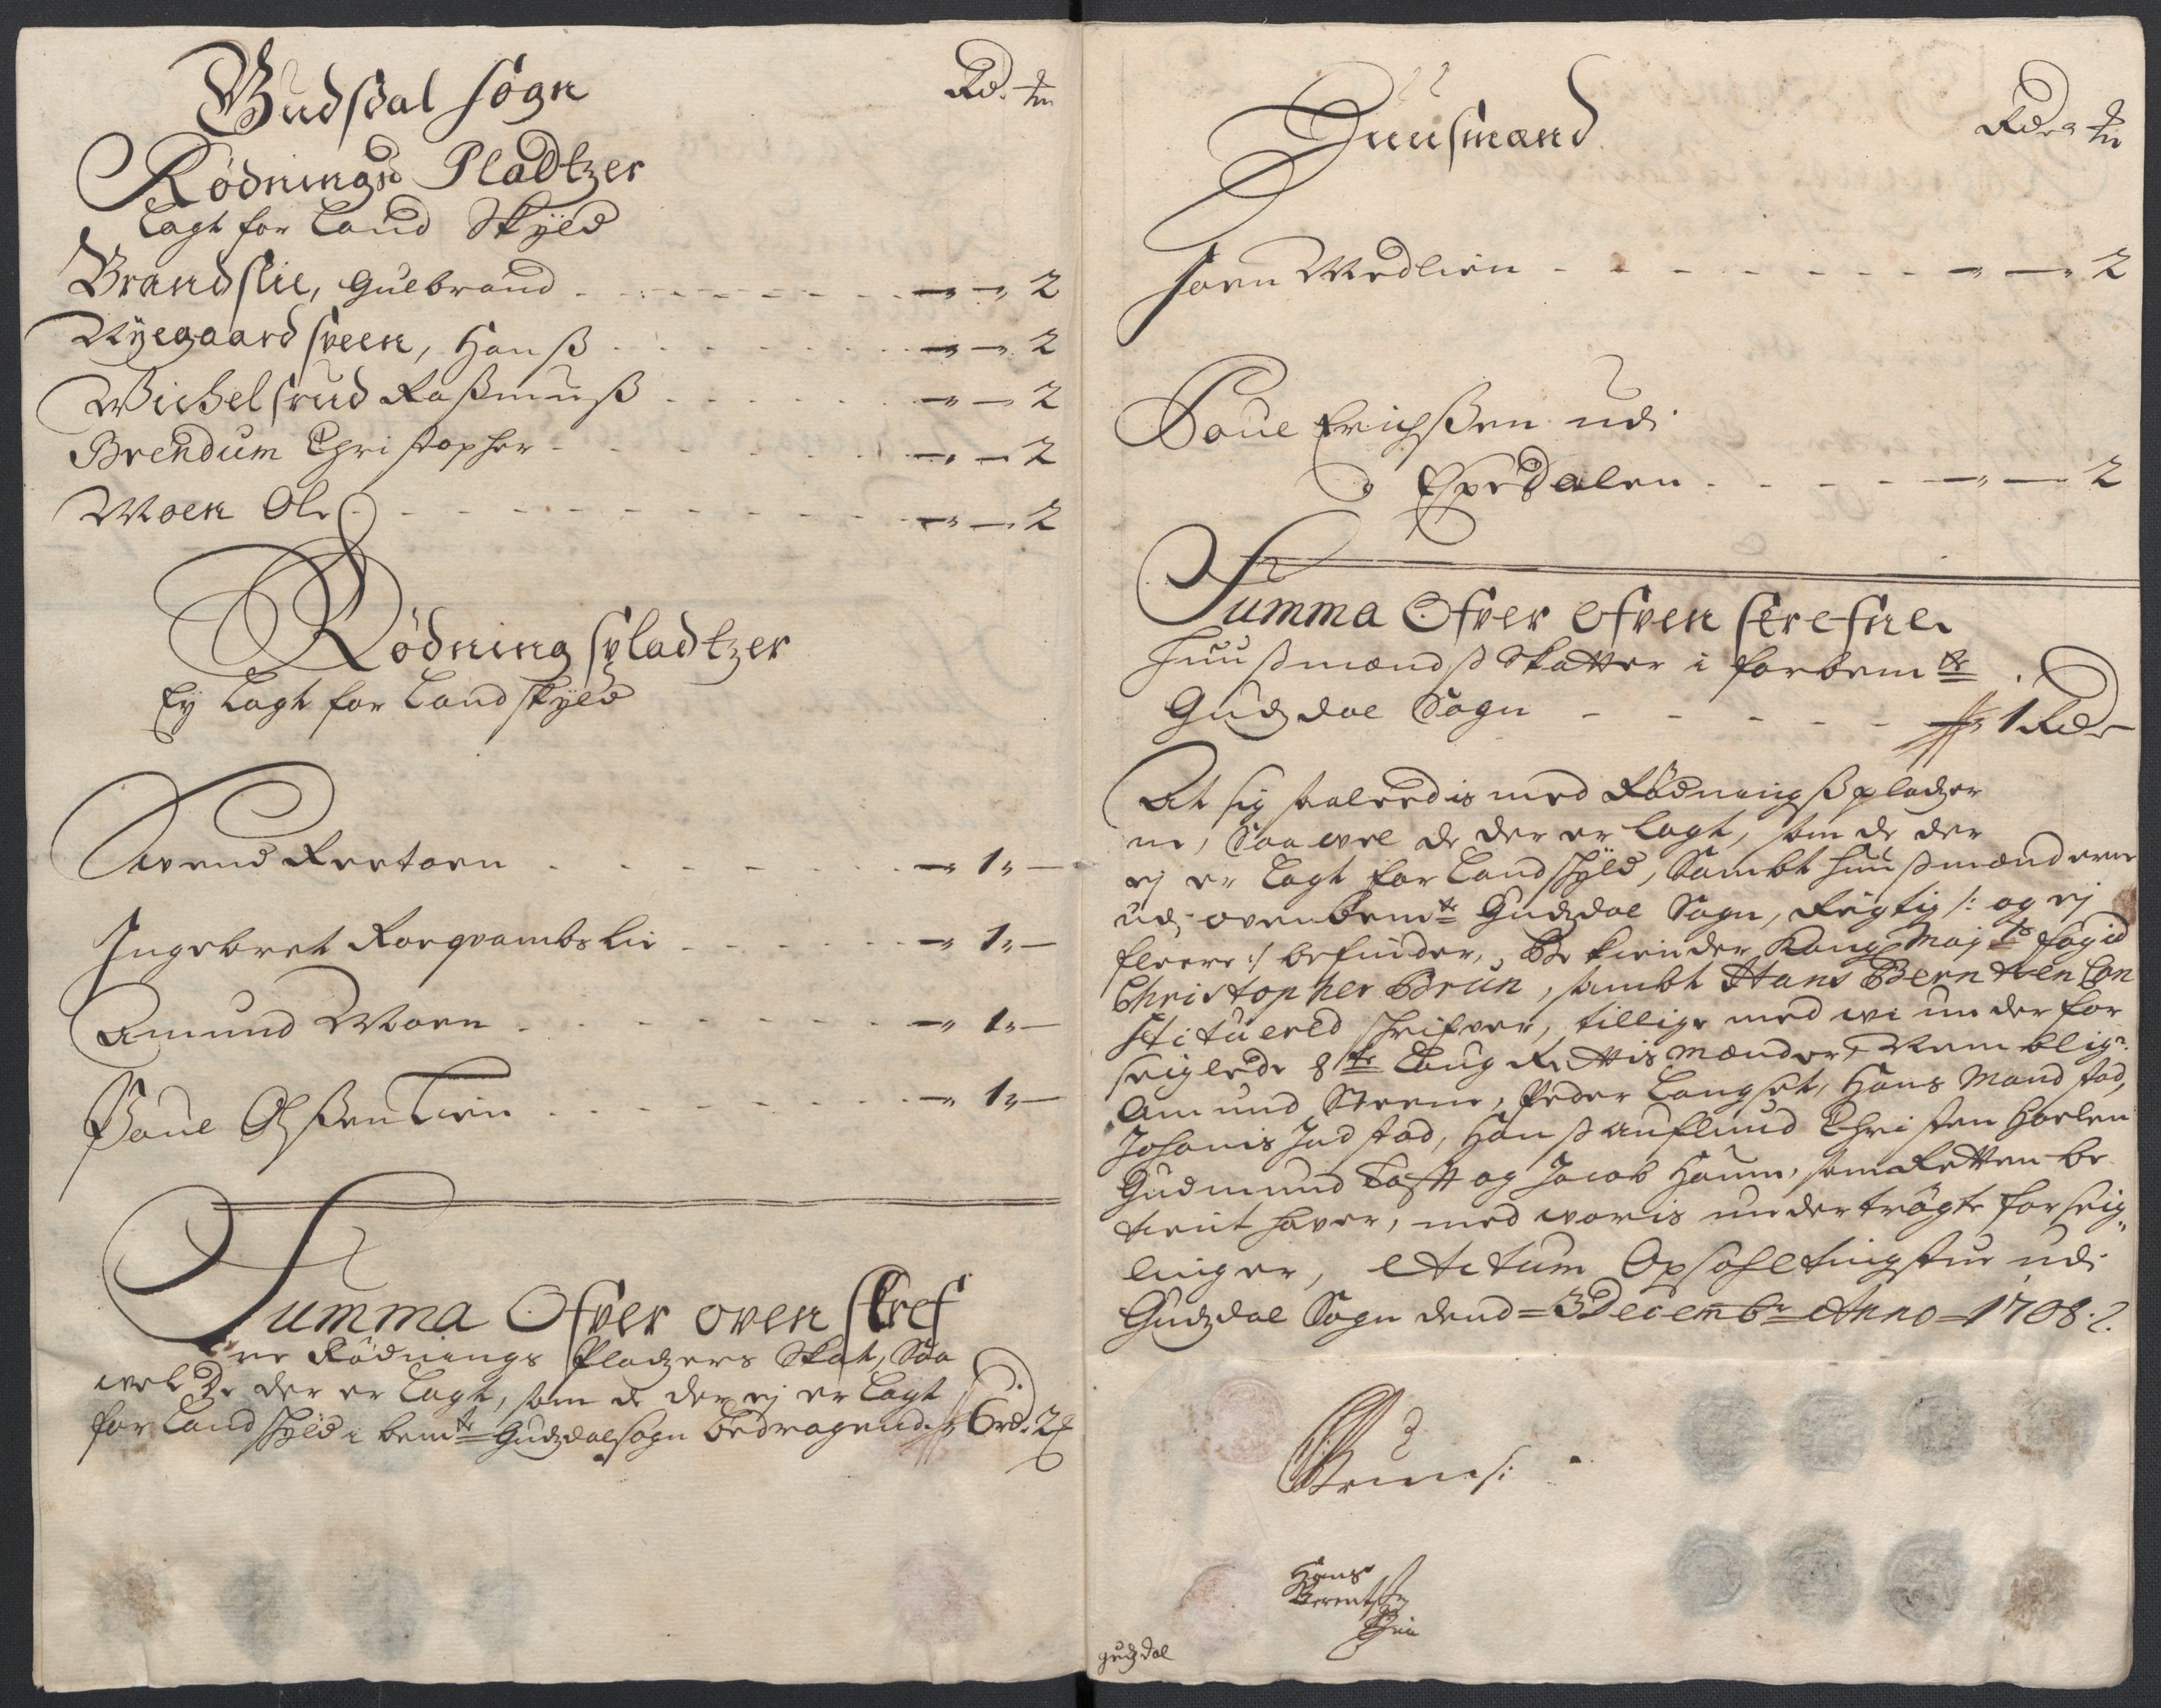 Gudsdal Sogn
Rd. ort
Rødnings Pladtzer
Lagt for Land Skyld
Brandslie, Gulbrand - - 2
Nyegaardsveen, Hanss - - 2
Michelsrud Rassmuss - - 2
Brendum Christopher - - 2
Moen Ole - - 2
Rødningspladtzer
Ey Lagt for Landskyld
Svend - 1 -
Ingebret Roeqvambslie - 1 -
Amund Moen - 1 -
Poul Olssen Lien - 1 -
Summa Ofver ovenskref
ne Rødnings Pladzers Skat, Saa
vel De der er Lagt, som de der ej er Lagt
for Landskyld i bemte Gudzdal sogn Bedragend. 6 rd. 2
Huusmænd
Rdr ort
Joen Medlien - - 2
Poul Erichssen udi
Espedalen - - 2
Summa Ofver ofvenskrefne
Huussmændss Skatter i forbemte
Gudzdal Sogn - 1 Rdr
At sig saaledis med Rødningsspladzer
ne, Saa vel de der er lagt, som de der
ej er Lagt for Landskyld, Sambt Huussmænderne
udj ovenbemte Gudzdal Sogn, Rigtig /: og ej
fleere :/ befinder, Bekiender Kongl. Mayts fogid
Christopher Brun, sambt Hans Berntsen Con
stitueeld Skrifver, tillige med vi under for
seiglede 8te Laug Rettismænder, Nemblig:
Amund Steene, Peder Langset, Hans Mandstad,
Johanis Jndstad, Hanss Auflund Christen Haelen
Gudmund Toft og Jacob Haum, som Retten be
tient haver, med voris undertrøgte forseig,,
linger, Actum Opsahl tingstue udi
Gudzdal Sogn dend 3 Decembr Anno 1708.
Brun
Hans
Berentsen
gudzdal